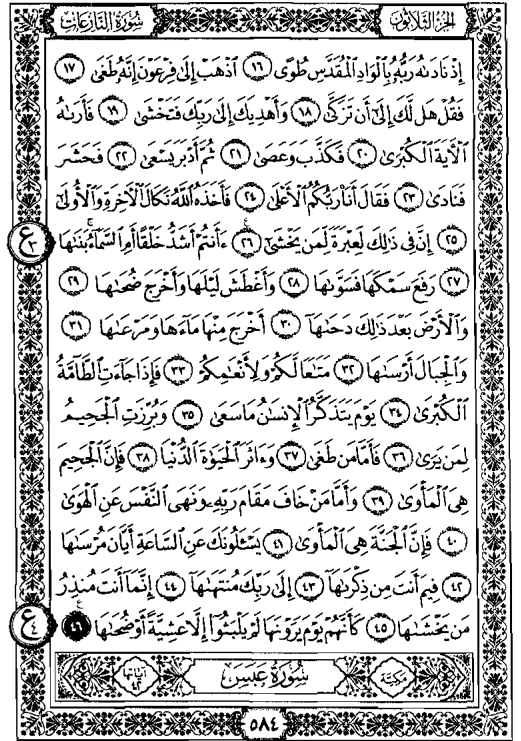 الجزء الثلاثون سورة النازعات
إِذْ نَادَىٰهُ رَبُّهُۥ بِٱلْوَادِ ٱلْمُقَدَّسِ طُوًى ١٦ ٱذْهَبْ إِلَىٰ فِرْعَوْنَ إِنَّهُۥ طَغَىٰ ١٧
فَقُلْ هَل لَّكَ إِلَىٰٓ أَن تَزَكَّىٰ ١٨ وَأَهْدِيَكَ إِلَىٰ رَبِّكَ فَتَخْشَىٰ ١٩ فَأَرَىٰهُ
ٱلْـَٔايَةَ ٱلْكُبْرَىٰ ٢٠ فَكَذَّبَ وَعَصَىٰ ٢١ ثُمَّ أَدْبَرَ يَسْعَىٰ ٢٢ فَحَشَرَ
فَنَادَىٰ ٢٣ فَقَالَ أَنَا۠ رَبُّكُمُ ٱلْأَعْلَىٰ ٢٤ فَأَخَذَهُ ٱللَّهُ نَكَالَ ٱلْـَٔاخِرَةِ وَٱلْأُولَىٰٓ
٢٥ إِنَّ فِى ذَٰلِكَ لَعِبْرَةً لِّمَن يَخْشَىٰٓ ٢٦ ءَأَنتُمْ أَشَدُّ خَلْقًا أَمِ ٱلسَّمَآءُ ۚ بَنَىٰهَا
٢٧ رَفَعَ سَمْكَهَا فَسَوَّىٰهَا ٢٨ وَأَغْطَشَ لَيْلَهَا وَأَخْرَجَ ضُحَىٰهَا ٢٩
وَٱلْأَرْضَ بَعْدَ ذَٰلِكَ دَحَىٰهَآ ٣٠ أَخْرَجَ مِنْهَا مَآءَهَا وَمَرْعَىٰهَا ٣١
وَٱلْجِبَالَ أَرْسَىٰهَا ٣٢ مَتَٰعًا لَّكُمْ وَلِأَنْعَٰمِكُمْ ٣٣ فَإِذَا جَآءَتِ ٱلطَّآمَّةُ
ٱلْكُبْرَىٰ ٣٤ يَوْمَ يَتَذَكَّرُ ٱلْإِنسَٰنُ مَا سَعَىٰ ٣٥ وَبُرِّزَتِ ٱلْجَحِيمُ
لِمَن يَرَىٰ ٣٦ فَأَمَّا مَن طَغَىٰ ٣٧ وَءَاثَرَ ٱلْحَيَوٰةَ ٱلدُّنْيَا ٣٨ فَإِنَّ ٱلْجَحِيمَ
هِىَ ٱلْمَأْوَىٰ ٣٩ وَأَمَّا مَنْ خَافَ مَقَامَ رَبِّهِۦ وَنَهَى ٱلنَّفْسَ عَنِ ٱلْهَوَىٰ
٤٠ فَإِنَّ ٱلْجَنَّةَ هِىَ ٱلْمَأْوَىٰ ٤١ يَسْـَٔلُونَكَ عَنِ ٱلسَّاعَةِ أَيَّانَ مُرْسَىٰهَا
٤٢ فِيمَ أَنتَ مِن ذِكْرَىٰهَآ ٤٣ إِلَىٰ رَبِّكَ مُنتَهَىٰهَآ ٤٤ إِنَّمَآ أَنتَ مُنذِرُ
مَن يَخْشَىٰهَا ٤٥ كَأَنَّهُمْ يَوْمَ يَرَوْنَهَا لَمْ يَلْبَثُوٓا۟ إِلَّا عَشِيَّةً أَوْ ضُحَىٰهَا ٤٦
ع ٣
ع ٤
مكية سورة عبس آياتها ٤٢
٥٨٤